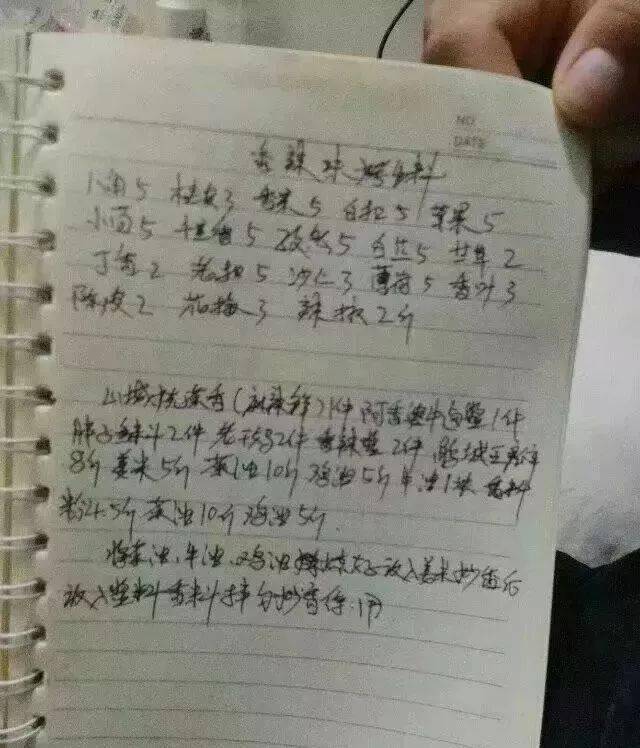 NO.
DATE
香辣 烤 料
八角5 桂皮3 香果5 白扣5 苹果5
小茴5 桂枝5 5 白芷5 甘草2
丁香2 老扣5 沙仁3 薄荷5 香叶3
陈皮2 3 辣椒2斤
山城 香(麻辣鲜)1件 阿香婆牛肉酱1件
胖子鱼料2件 老干妈2件 香辣酱2件
8斤 姜米5斤 菜油10斤 鸡油5斤 牛油1 香料
粉4.5斤 菜油10斤 鸡油5斤.
将菜油,牛油,鸡油 放入姜米炒香后
放入酱料香料拌匀炒香待用